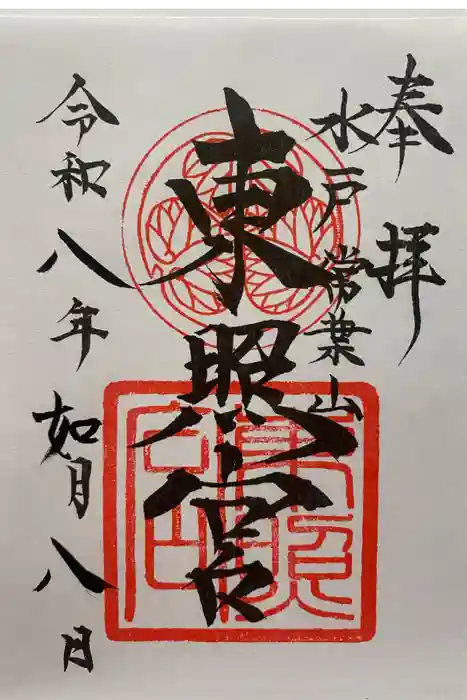 奉拝
水戸常葉山
東照宮
令和八年如月八日
東照
宮印